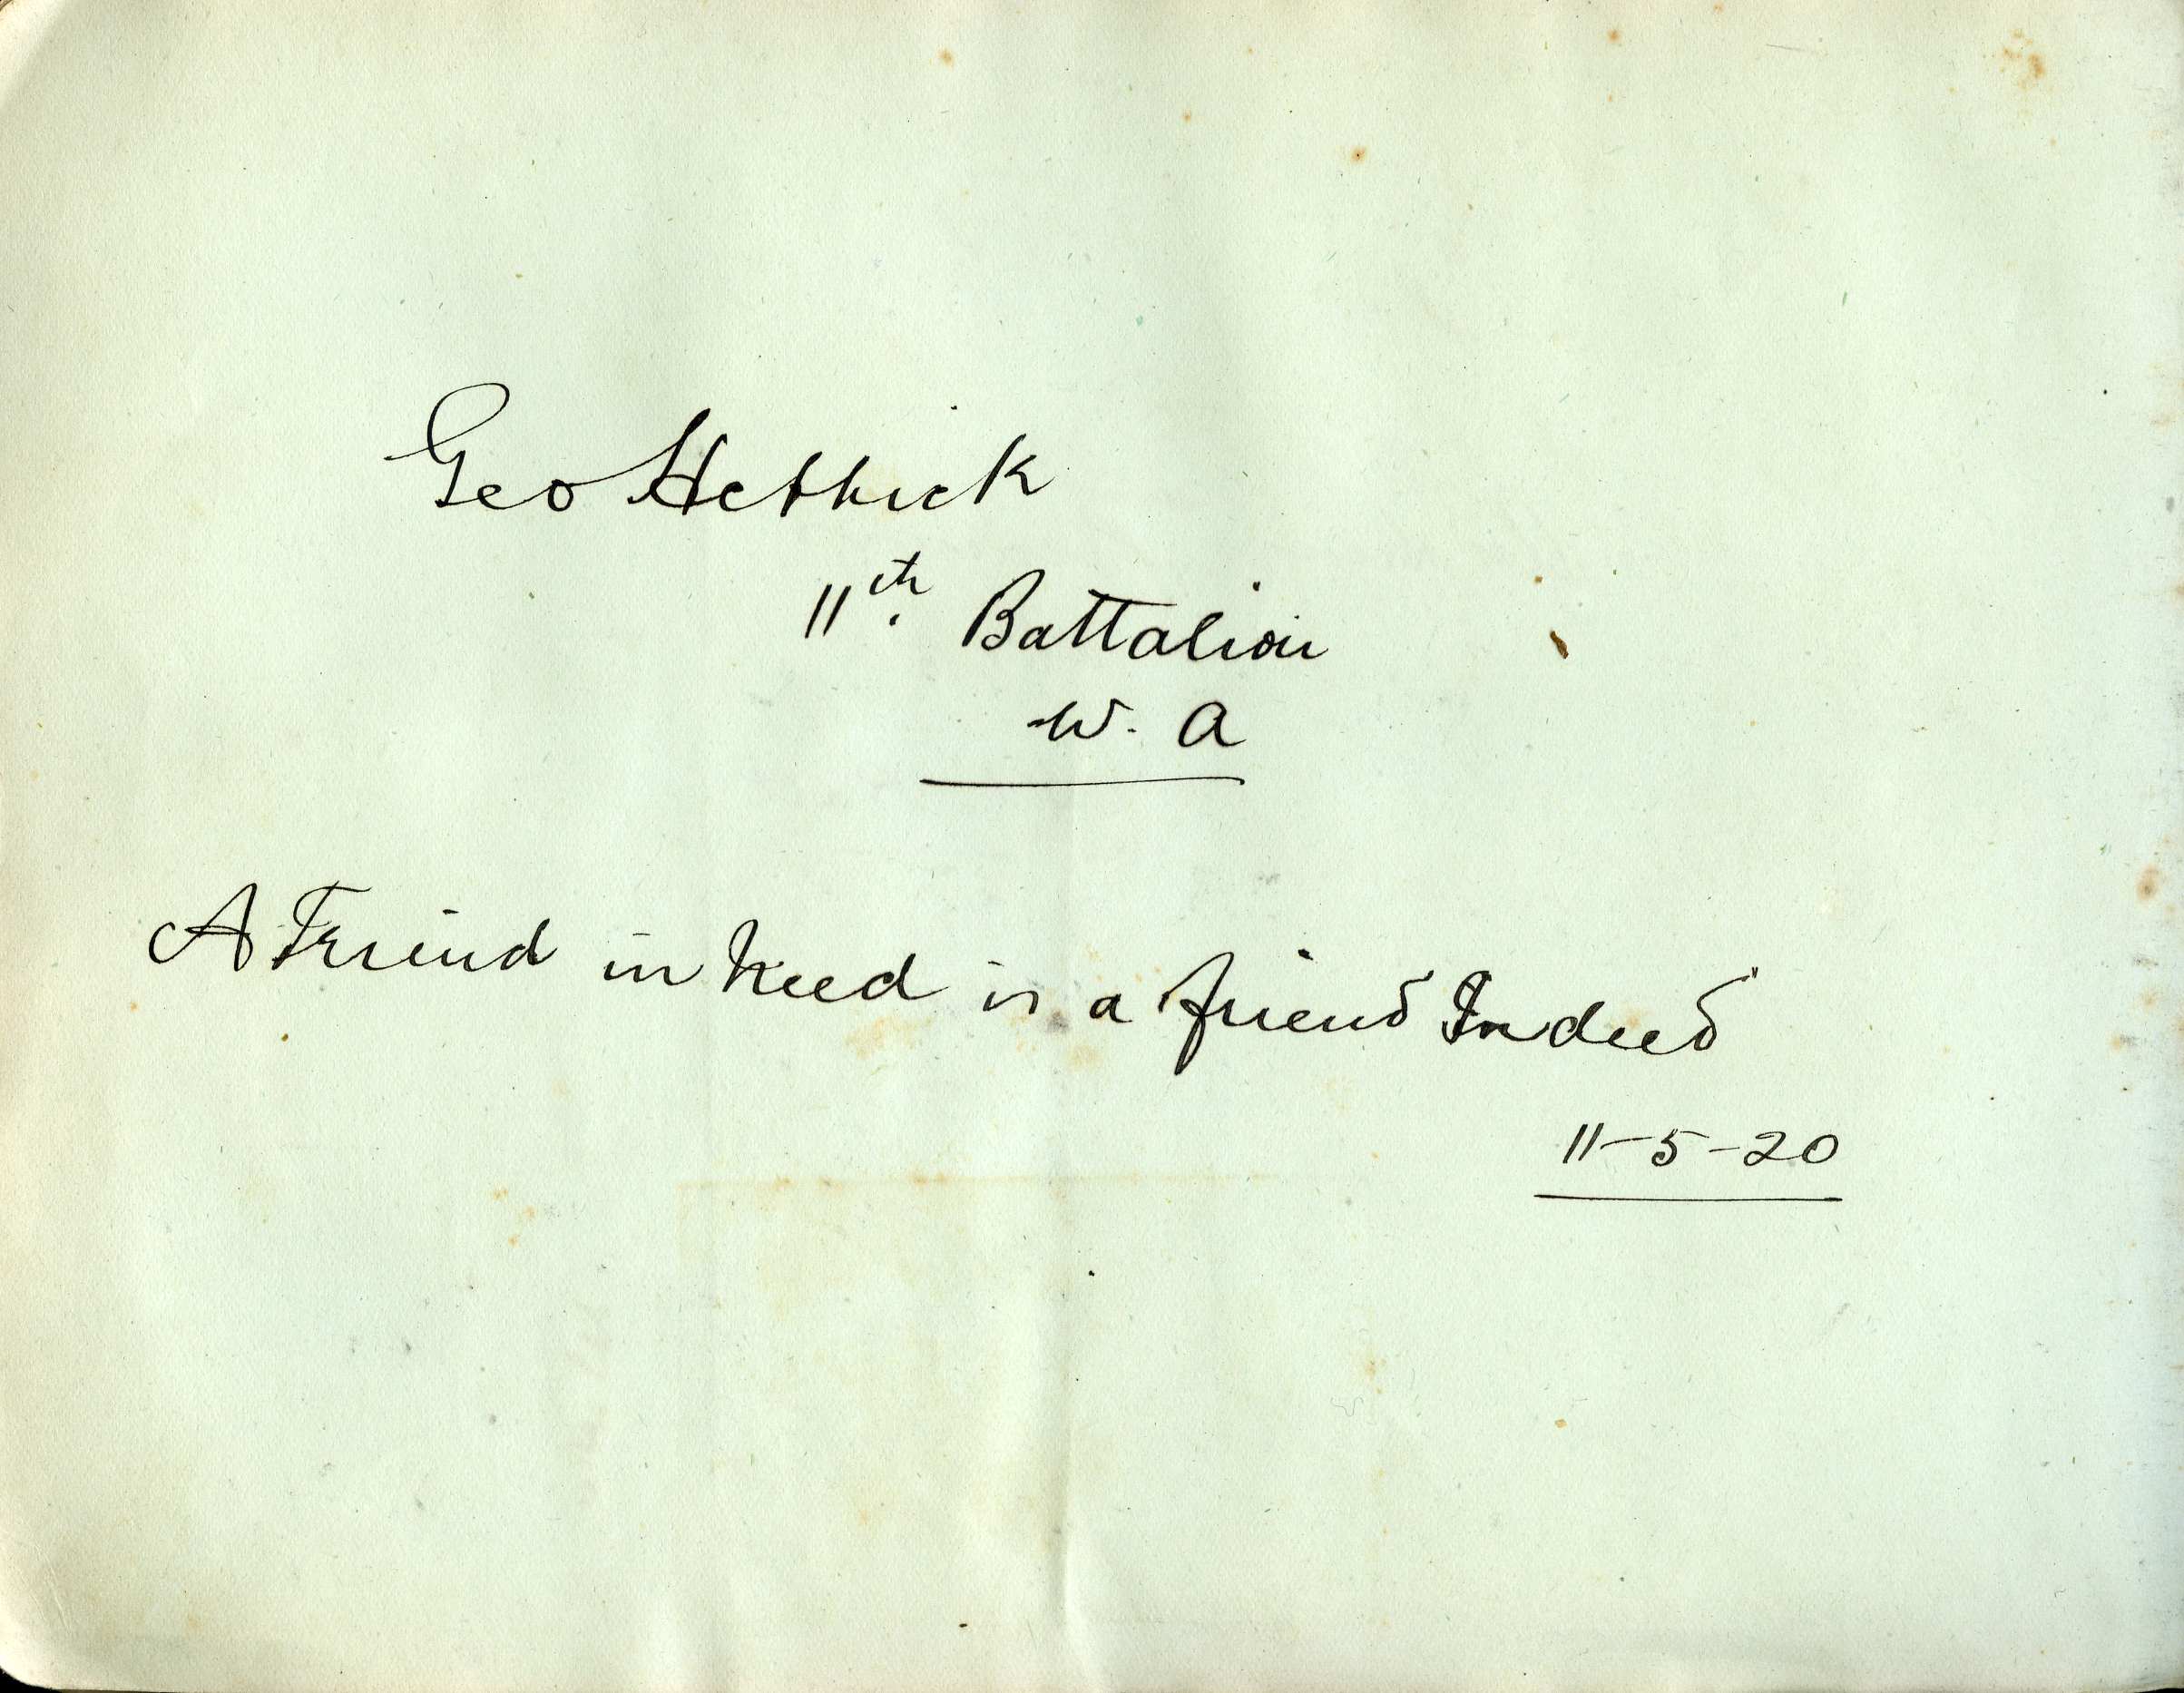 Geo
11th. Battalion
W. A
A Friend in Need is a friend Indeed
11-5-20